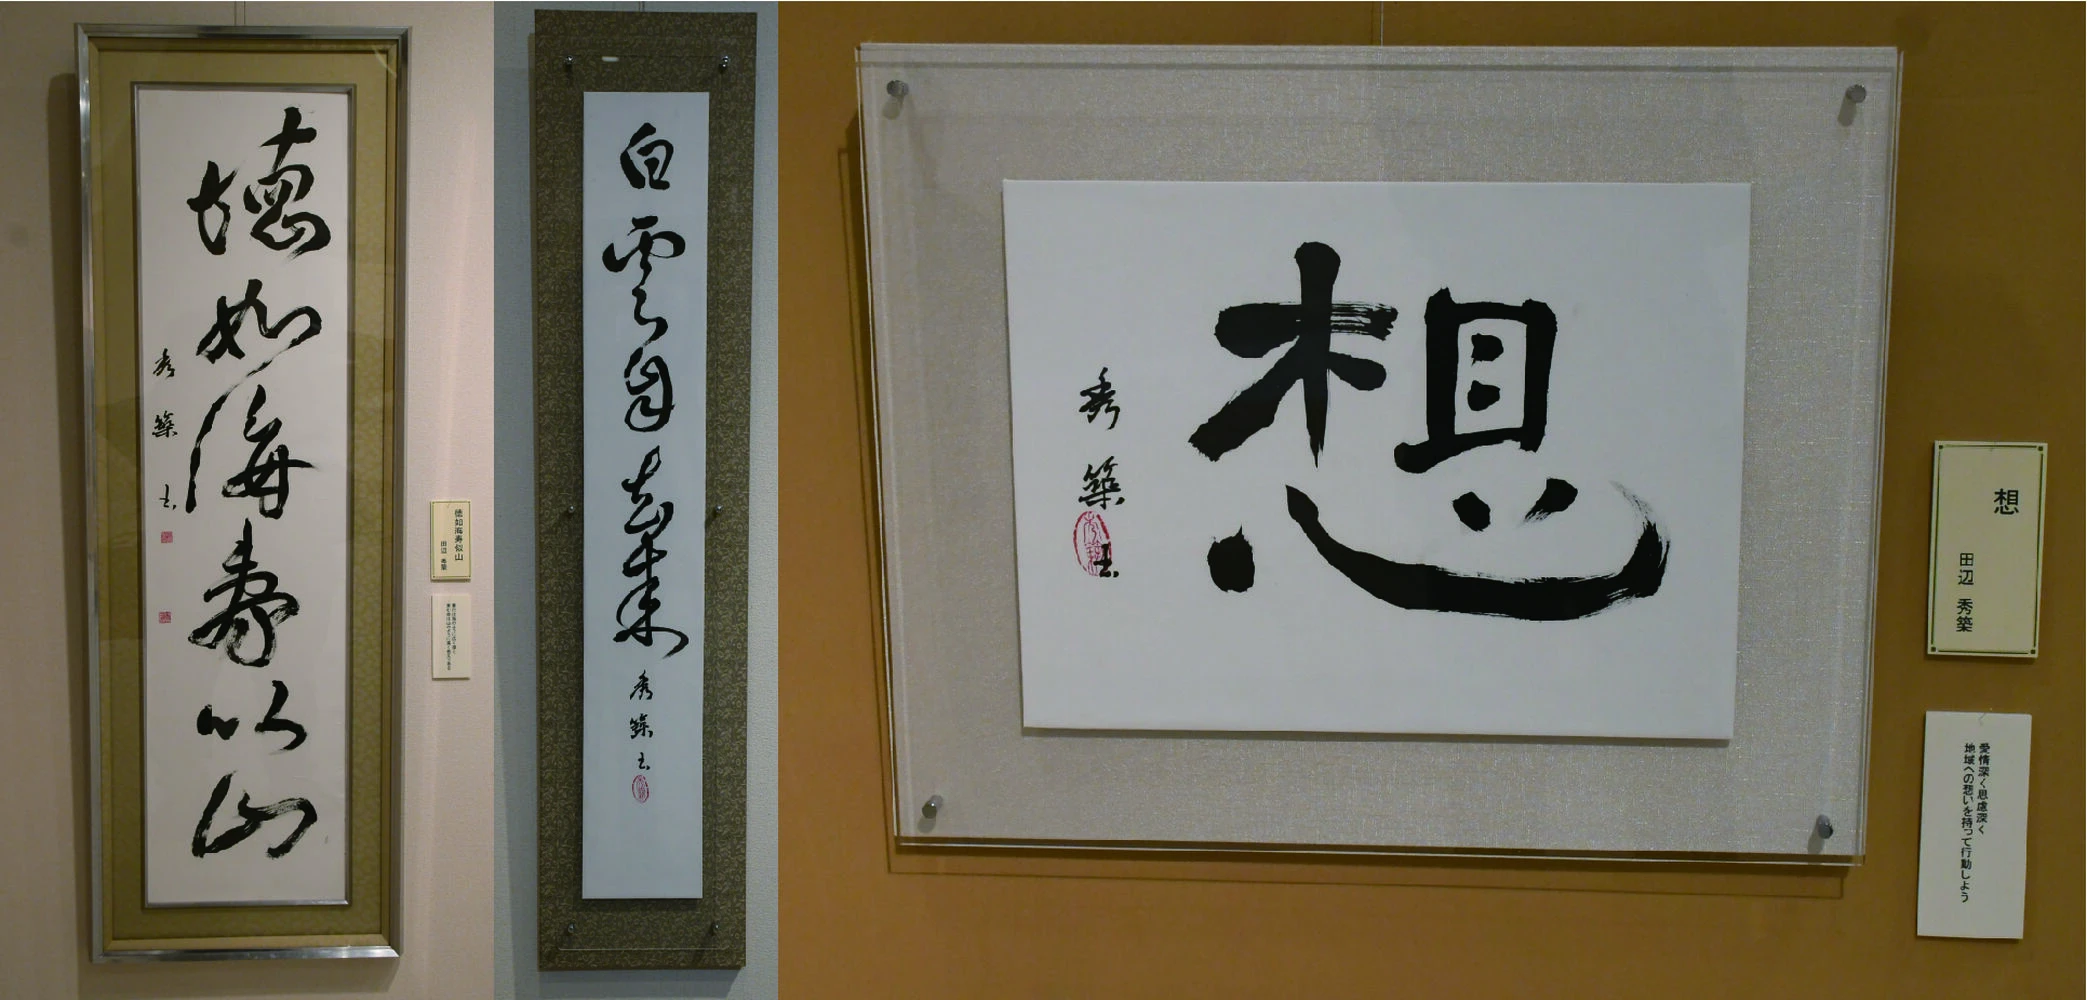 徳如海寿似山
秀築書
徳如海寿似山
田辺 秀築
白雲自去来
秀築書
想
秀築書
想
田辺 秀築
愛情深く思慮深く
地域への想いを持って行動しよう